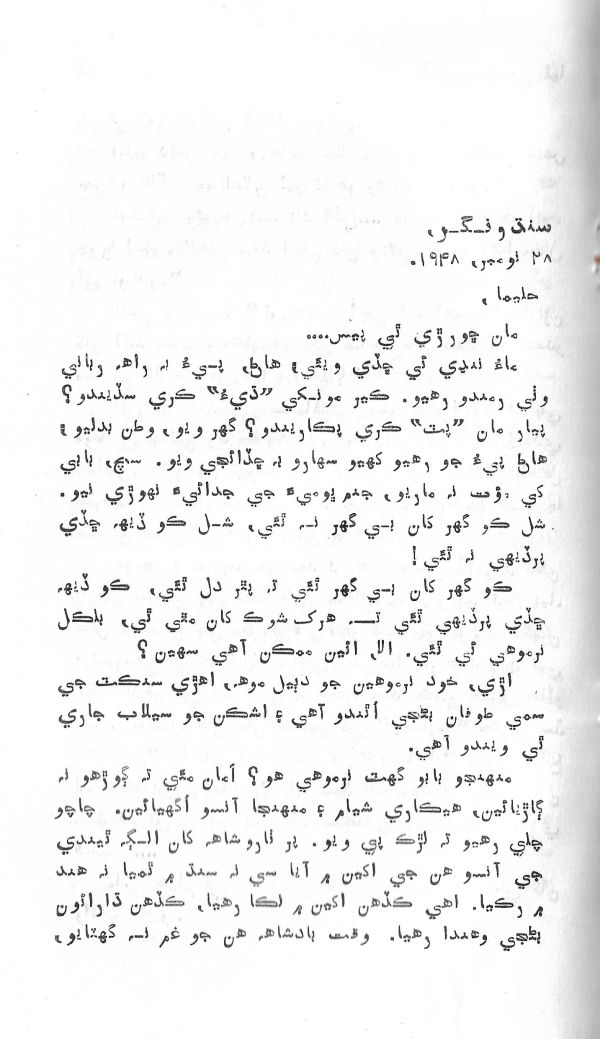 سنڌ و نگر،
۲۸ نومبر، ۱۹۴۸.
حليما ،
مان ڇورڙي ٿي پيس....
ماءُ ننڍي ٿي ڇڏي ويئي؛ هاڻ، پيءُ بہ راهہ رباني
وٺي رمندو رهيو. ڪير مونکي ”ڌيءُ“ ڪري سڏيندو؟
پيار مان ”پٽ“ ڪري پڪاريندو؟ گهر ويو، وطن بدليو؛
هاڻ پيءُ جو رهيو کهيو سهارو بہ ڇڏائجي ويو. سچ، بابي
کي موت نہ ماريو، جنم ڀوميءَ جي جدائيءَ نهوڙي نيو.
شل ڪو گهر کان بي گهر نہ ٿئي، شل ڪو ڏيهہ ڇڏي
پرڏيهي نہ ٿئي!
ڪو گهر کان بي گهر ٿئي تہ پٿر دل ٿئي، ڪو ڏيهہ
ڇڏي پرڏيهي ٿئي تہ هرڪ شوڪ کان مٿي ٿي، بلڪل
نرموهي ٿي ٿئي. الا، ائين ممڪن آهي سهين؟
اڙي، خود نرموهين جو دٻيل موهہ، اهڙي سنڪٽ جي
سمي طوفان بڻجي اٿندو آهي ۽ اشڪن جو سيلاب جاري
ٿي ويندو آهي.
منهنجو بابو گهٽ نرموهي هو؟ اَمان مئي تہ ڳوڙهو نہ
ڳاڙيائين، هيڪاري شيام ۽ منهنجا آنسو اُگهيائين. چاچو
چلي رهيو تہ لڙڪ پي ويو. پر ٺاروشاهہ کان الڳ ٿيندي
جي آنسو هن جي اکين ۾ آيا سي نہ سنڌ ۾ ٿميا نہ هند
۾ رڪيا. اهي ڪڏهن اکين ۾ لڪا رهيا، ڪڏهن ڌارائون
بڻجي وهندا رهيا. وقت بادشاهہ هن جو غم نہ گهٽايو،